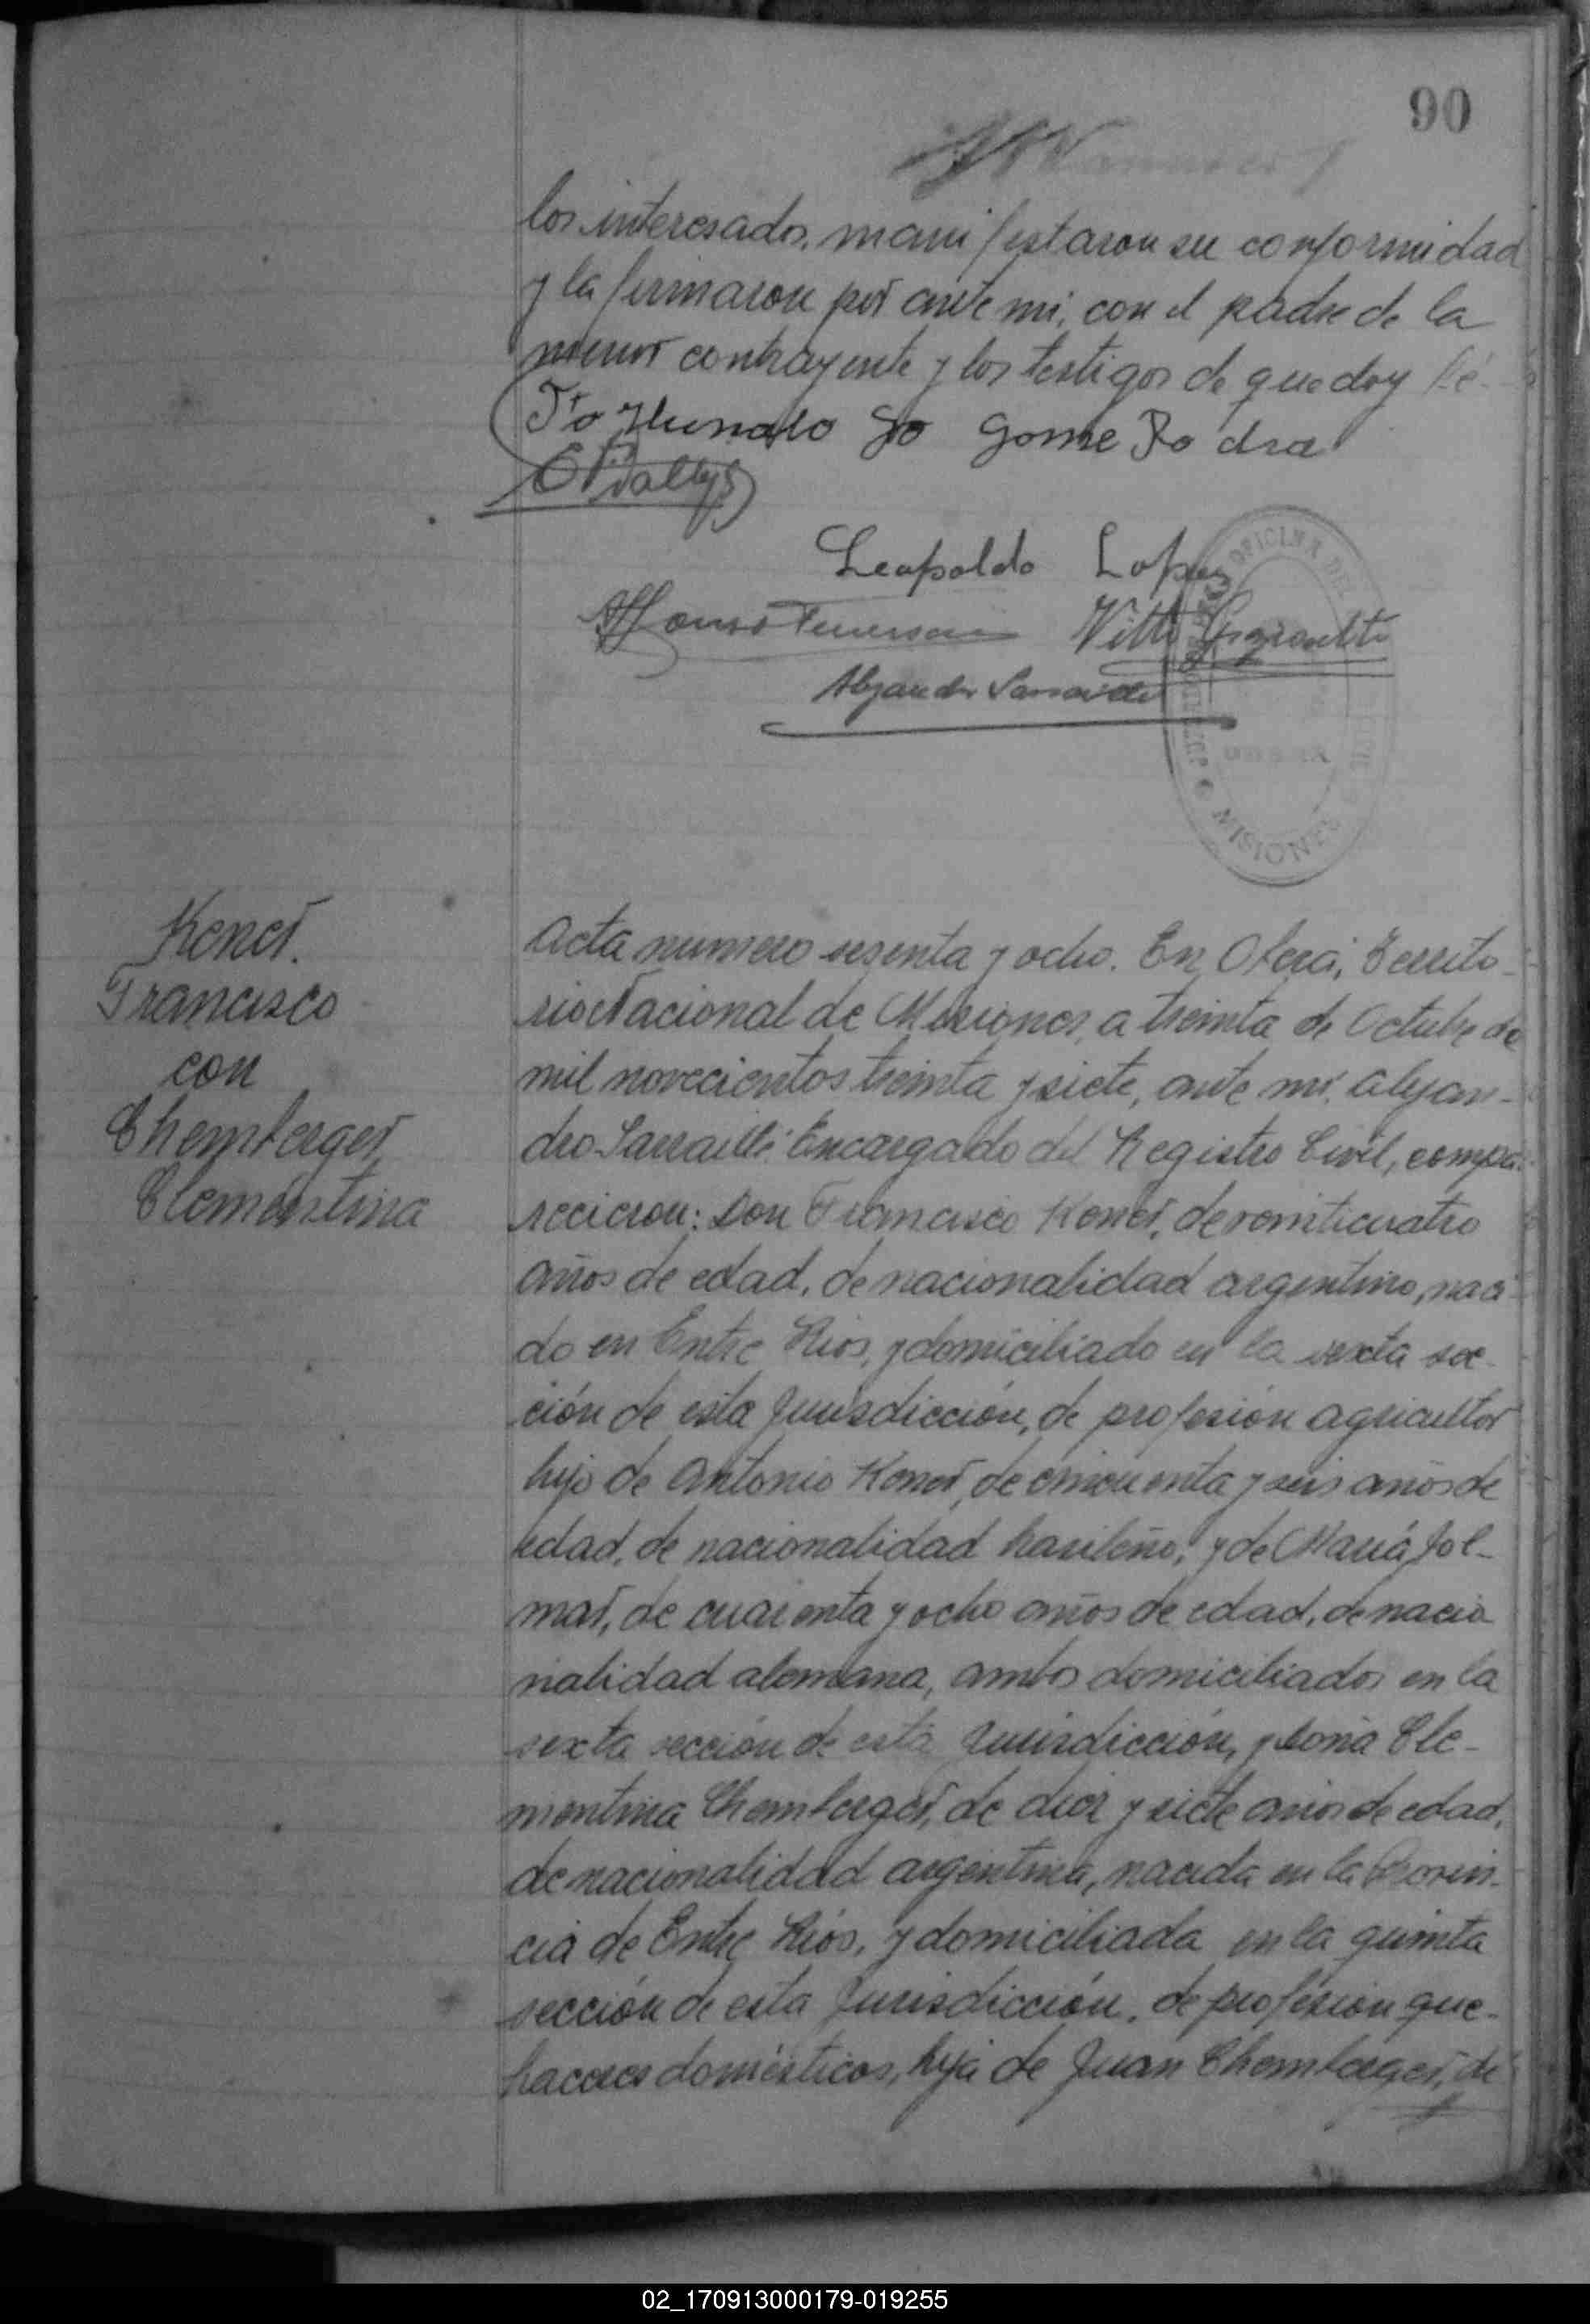 90
los interesados, manifestaron su conformidad
y la firmaron por ante mi, con el padre de la
menor contrayente y los testigos de que doy fé.
Leopoldo Lopez
OFICINA DEL
MISIONES
Kener.
Francisco
con
Chemberger
Clementina
Acta numero sesenta y ocho. En Oberá, Territo-
rio Nacional de Misiones, a treinta de Octubre de
mil novecientos treinta y siete, ante mi, Alejan-
dro Sarraillé Encargado del Registro Civil, compa-
recieron: Don Francisco Kener, de venticuatro
años de edad, de nacionalidad argentino, naci-
do en Entre Rios, y domiciliado en la sexta sec-
ción de esta Jurisdicción, de profesión agricultor
hijo de Antonio Kener, de cincuenta y seis años de
edad, de nacionalidad brasileño, y de Maria Jol-
mar, de cuarenta y ocho años de edad, de nacio
nalidad alemana, ambos domiciliados en la
sexta sección de esta Jurisdicción, y Doña Cle-
mentina Chemberger, de diez y siete años de edad,
de nacionalidad argentina, nacida en la Provin-
cia de Entre Rios, y domiciliada en la quinta
sección de esta Jurisdicción, de profesión que-
haceres domésticos, hija de Juan Chemberger, de
02_170913000179-019255